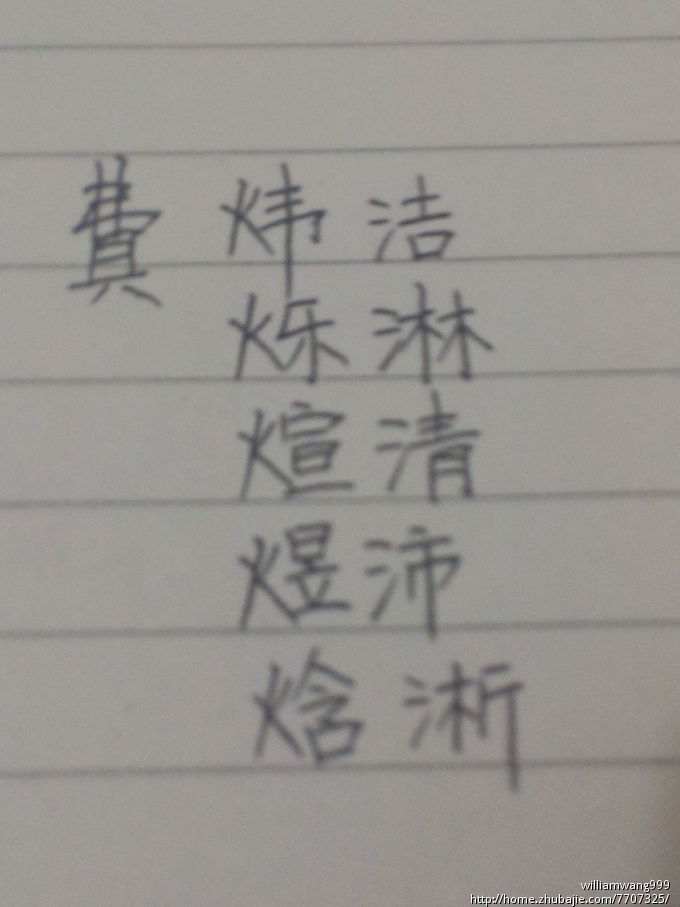 費 炜 洁
烁 淋
煊 清
煜 沛
焓 淅
williamwang999
http://home.zhubajie.com/7707325/